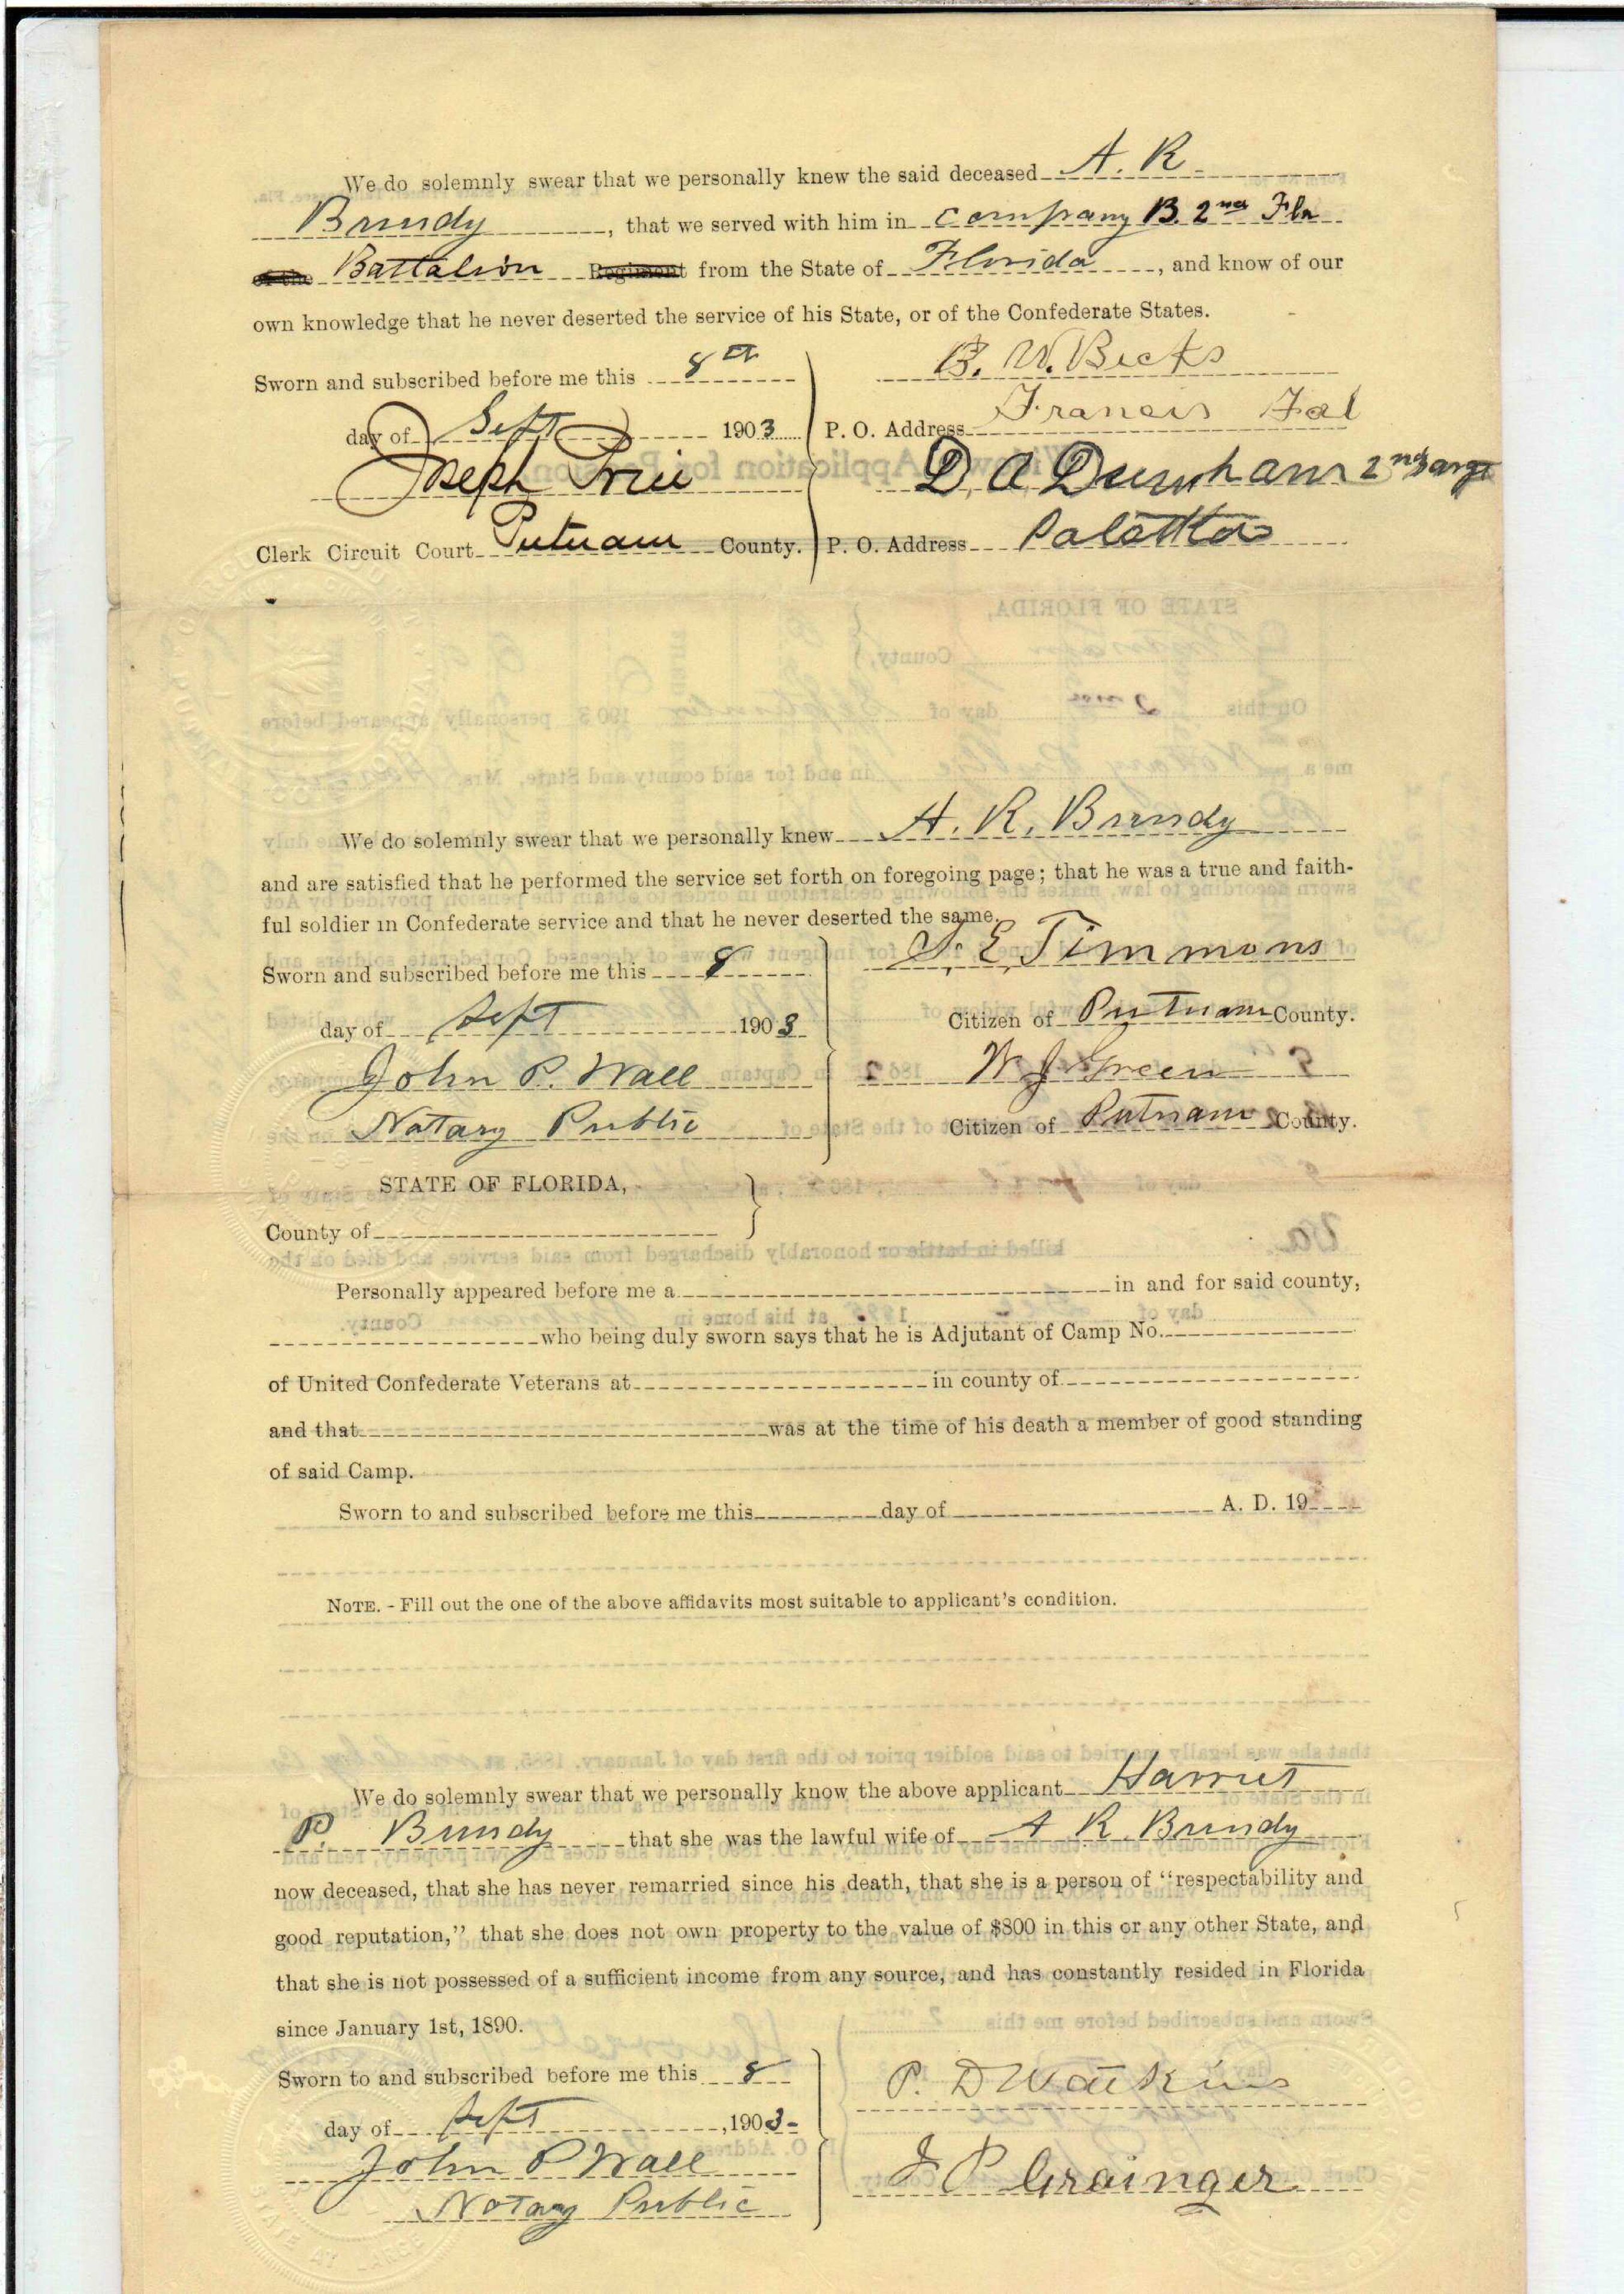 We do solemnly swear that we personally knew the said deceased A. R
Brundy, that we served with him in company B. 2nd Fla
of the Battalion Regiment from the State of Florida, and know of our
own knowledge that he never deserted the service of his State, or of the Confederate States.
Sworn and subscribed before me this 8th
day of Sept 1903
Joseph Price
Clerk Circuit Court Putnam County.
B. W. Beeks
P. O. Address Francis Fal
D A Dunham 2nd Sargt
P. O. Address Palatka
We do solemnly swear that we personally knew A. R. Brundy
and are satisfied that he performed the service set forth on foregoing page; that he was a true and faith-
ful soldier in Confederate service and that he never deserted the same.
Sworn and subscribed before me this 8
day of Sept 1903
John P. Wall
Notary Public
E Timmons
Citizen of Putnam County.
W J Green
Citizen of Putnam County.
STATE OF FLORIDA,
County of
Personally appeared before me a in and for said county,
who being duly sworn says that he is Adjutant of Camp No.
of United Confederate Veterans at in county of
and that was at the time of his death a member of good standing
of said Camp.
Sworn to and subscribed before me this day of A. D. 19
NOTE. - Fill out the one of the above affidavits most suitable to applicant's condition.
We do solemnly swear that we personally know the above applicant Harriet
P. Brundy that she was the lawful wife of A R. Brundy
now deceased, that she has never remarried since his death, that she is a person of "respectability and
good reputation," that she does not own property to the value of $800 in this or any other State, and
that she is not possessed of a sufficient income from any source, and has constantly resided in Florida
since January 1st, 1890.
Sworn to and subscribed before me this 8
day of Sept, 1903-
John P Wall
Notary Public
P. D Watkins
J P Grainger